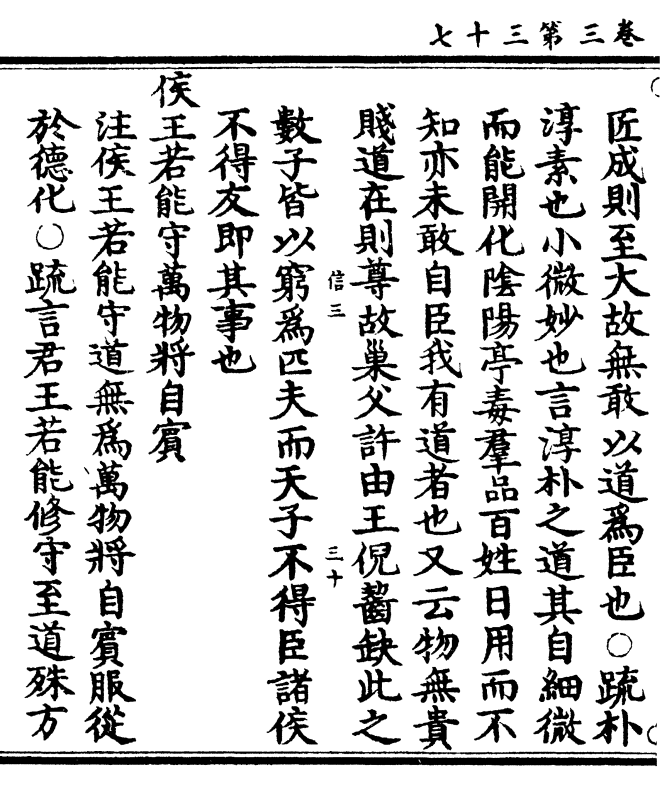 卷三第三十七
匠成則至大故無敢以道爲臣也○䟽朴
淳素也小微妙也言淳朴之道其自細微
而能開化陰陽亭毒羣品百姓日用而不
知亦未敢自臣我有道者也又云物無貴
賤道在則尊故巢父許由王倪齧缺此之
信三
三十
數子皆以窮爲匹夫而天子不得臣諸侯
不得友即其事也
侯王若能守萬物將自賓
注侯王若能守道無爲萬物將自賓服從
於德化○䟽言君王若能修守至道殊方